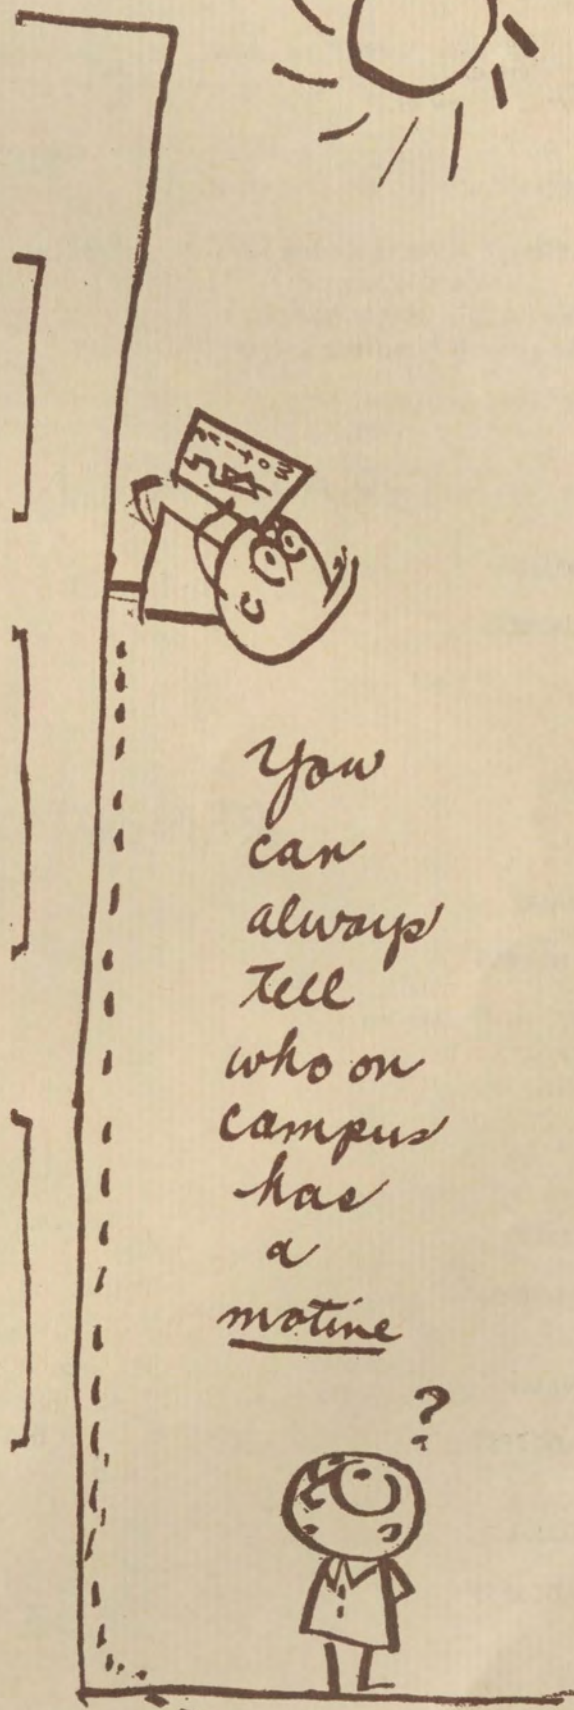 motive
You
can
always
tell
who on
campus
has
a
motive
?